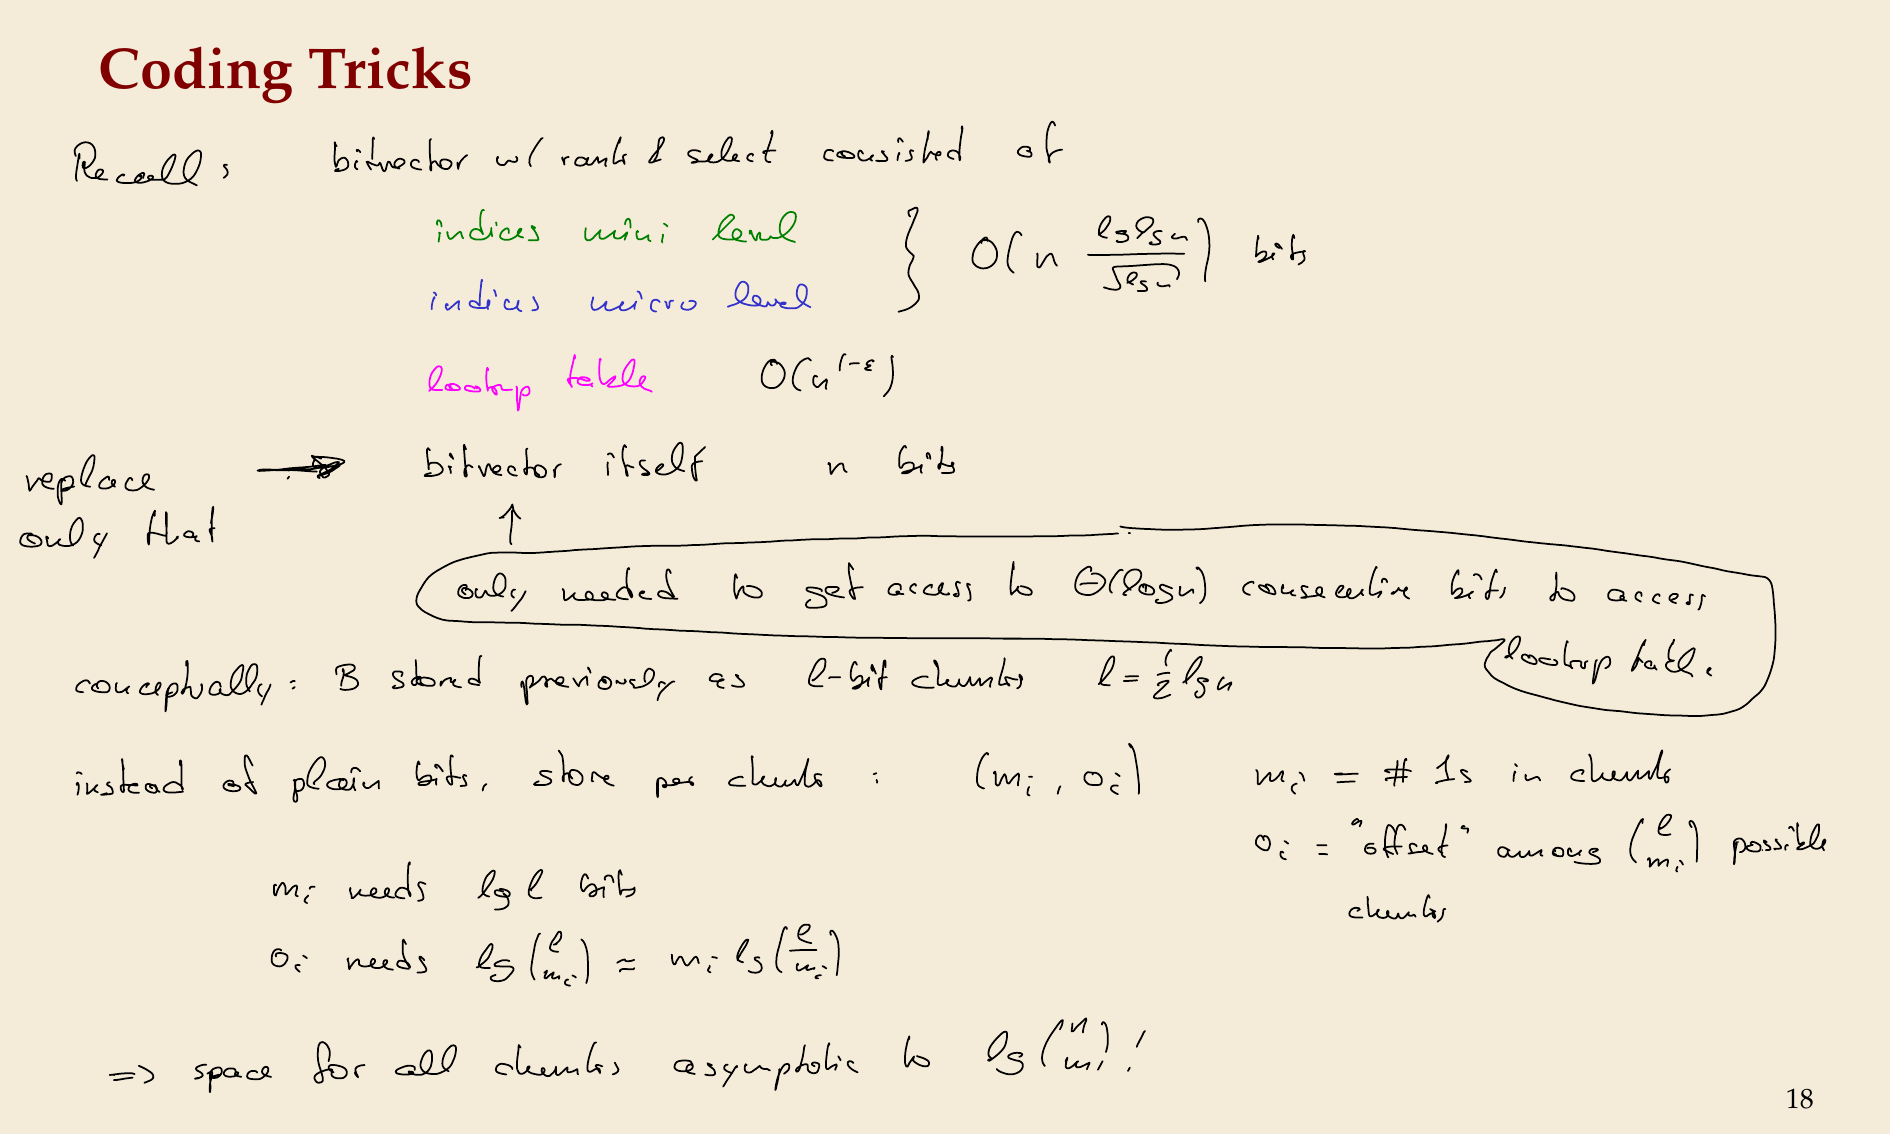 Coding Tricks
Recall: bitvector w/ rank & select consisted of
indices mini level } O(n lg lg n / √lg n) bits
indices micro level
lookup table O(n^(1-ε))
replace only that → bitvector itself n bits
↑
only needed to get access to Θ(log n) consecutive bits to access
lookup table.
conceptually: B stored previously as ℓ-bit chunks ℓ = 1/2 lg n
instead of plain bits, store per chunk: (m_i, o_i) m_i = # 1s in chunk
o_i = "offset" among (ℓ choose m_i) possible
chunks
m_i needs lg ℓ bits
o_i needs lg (ℓ choose m_i) ≈ m_i lg (ℓ/m_i)
=> space for all chunks asymptotic to lg (n choose m)!
18